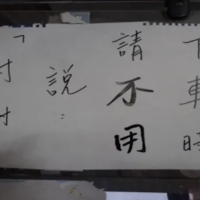 下車時
請不用
說：
「謝謝